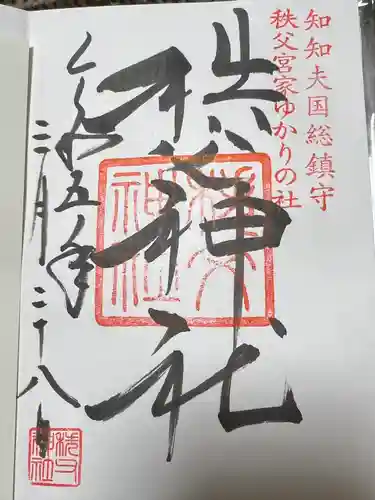 知知夫国総鎮守
秩父宮家ゆかりの社
秩父神社
令和五年
二月二十八日
秩父神社
秩父神社